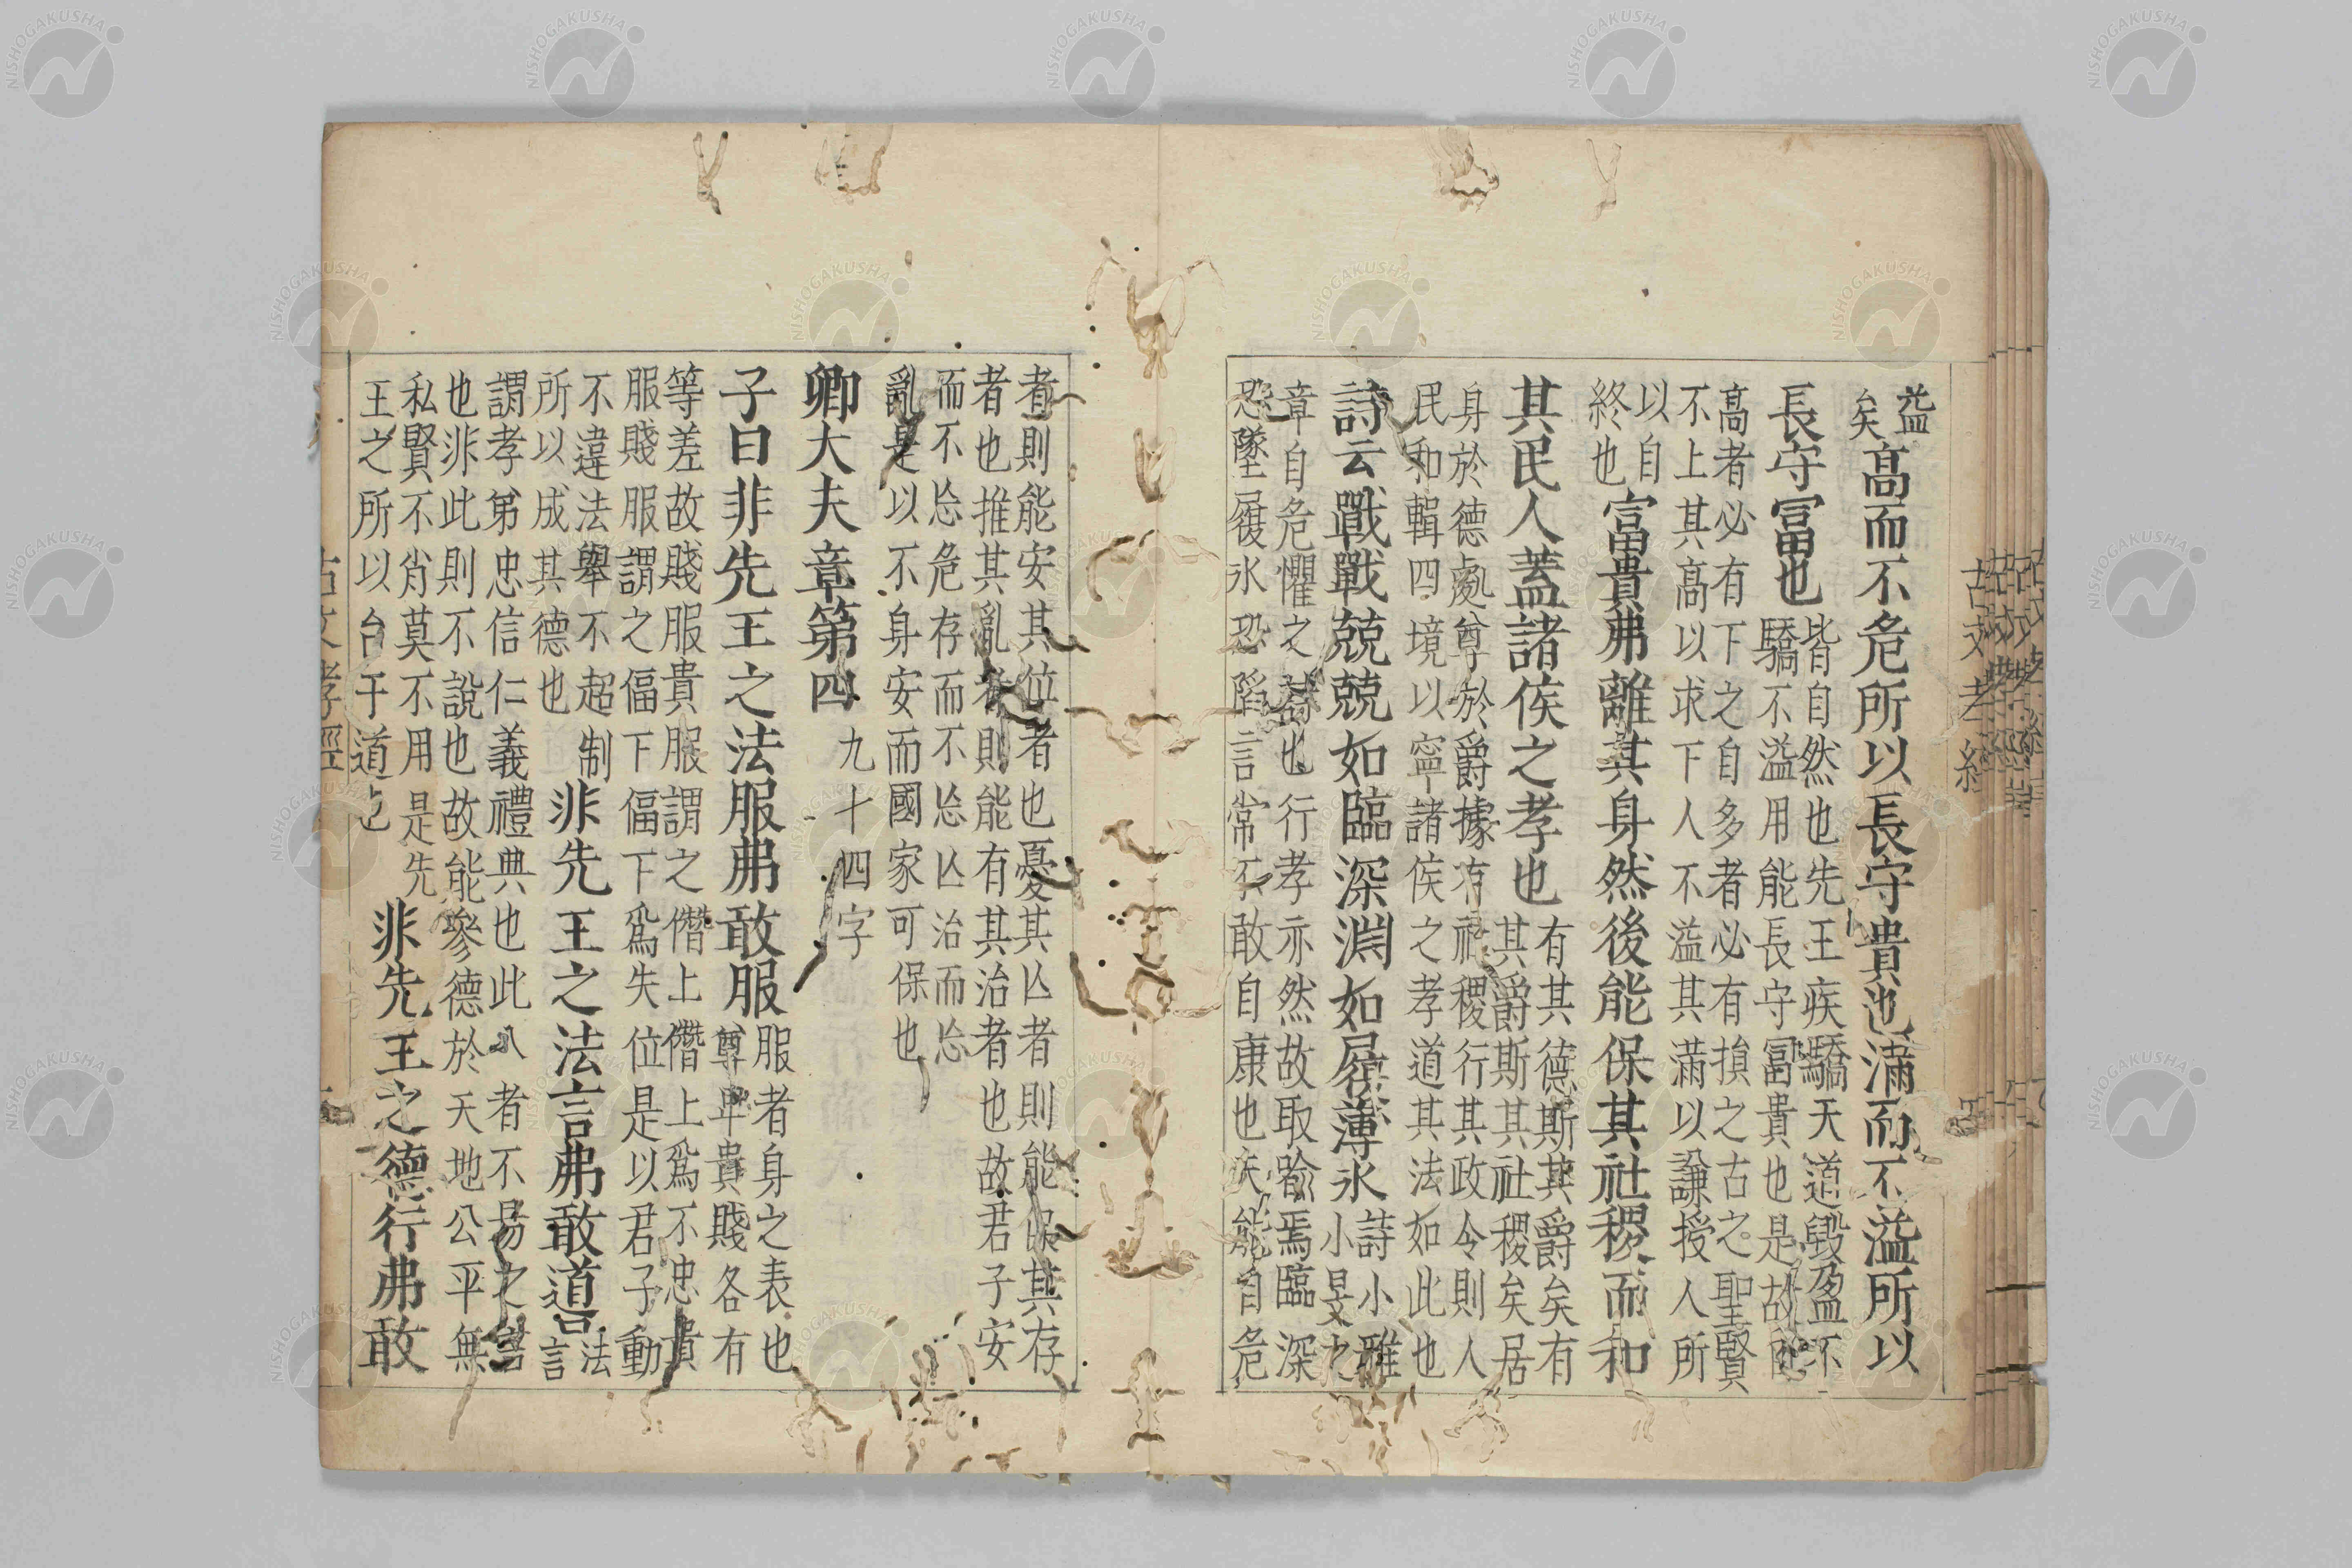 溢
矣
高而不危所以長守貴也滿而不溢所以
長守冨也
皆自然也先王疾驕天道毀盈不
驕不溢用能長守冨貴也是故自
高者必有下之自多者必有損之古之聖賢
不上其高以求下人不溢其滿以謙授人所
以自
終也
富貴弗離其身然後能保其社稷而和
其民人蓋諸侯之孝也
有其德斯其爵矣有
其爵斯其社稷矣居
身於德處尊於爵據有社稷行其政令則人
民和輯四境以寧諸侯之孝道其法如此也
詩云戰戰兢兢如臨深淵如履薄氷
詩小雅
小旻之
章自危懼之詩也行孝亦然故取喻焉臨深
恐墜履氷恐陷言常不敢自康也夫能自危
者則能安其位者也憂其亾者則能保其存
者也推其亂者則能有其治者也故君子安
而不忘危存而不忘亾治而忘
亂是以不身安而國家可保也
卿大夫章第四
九十四字
子曰非先王之法服弗敢服
服者身之表也
尊卑貴賤各有
等差故賤服貴服謂之僭上僭上爲不忠貴
服賤服謂之偪下偪下爲失位是以君子動
不違法舉不超制
所以成其德也
非先王之法言弗敢道
法
言
謂孝弟忠信仁義禮典也此八者不易之言
也非此則不說也故能參德於天地公平無
私賢不肖莫不用是先
王之所以合于道也
非先王之德行弗敢
古文孝經
NISHOGAKUSHA